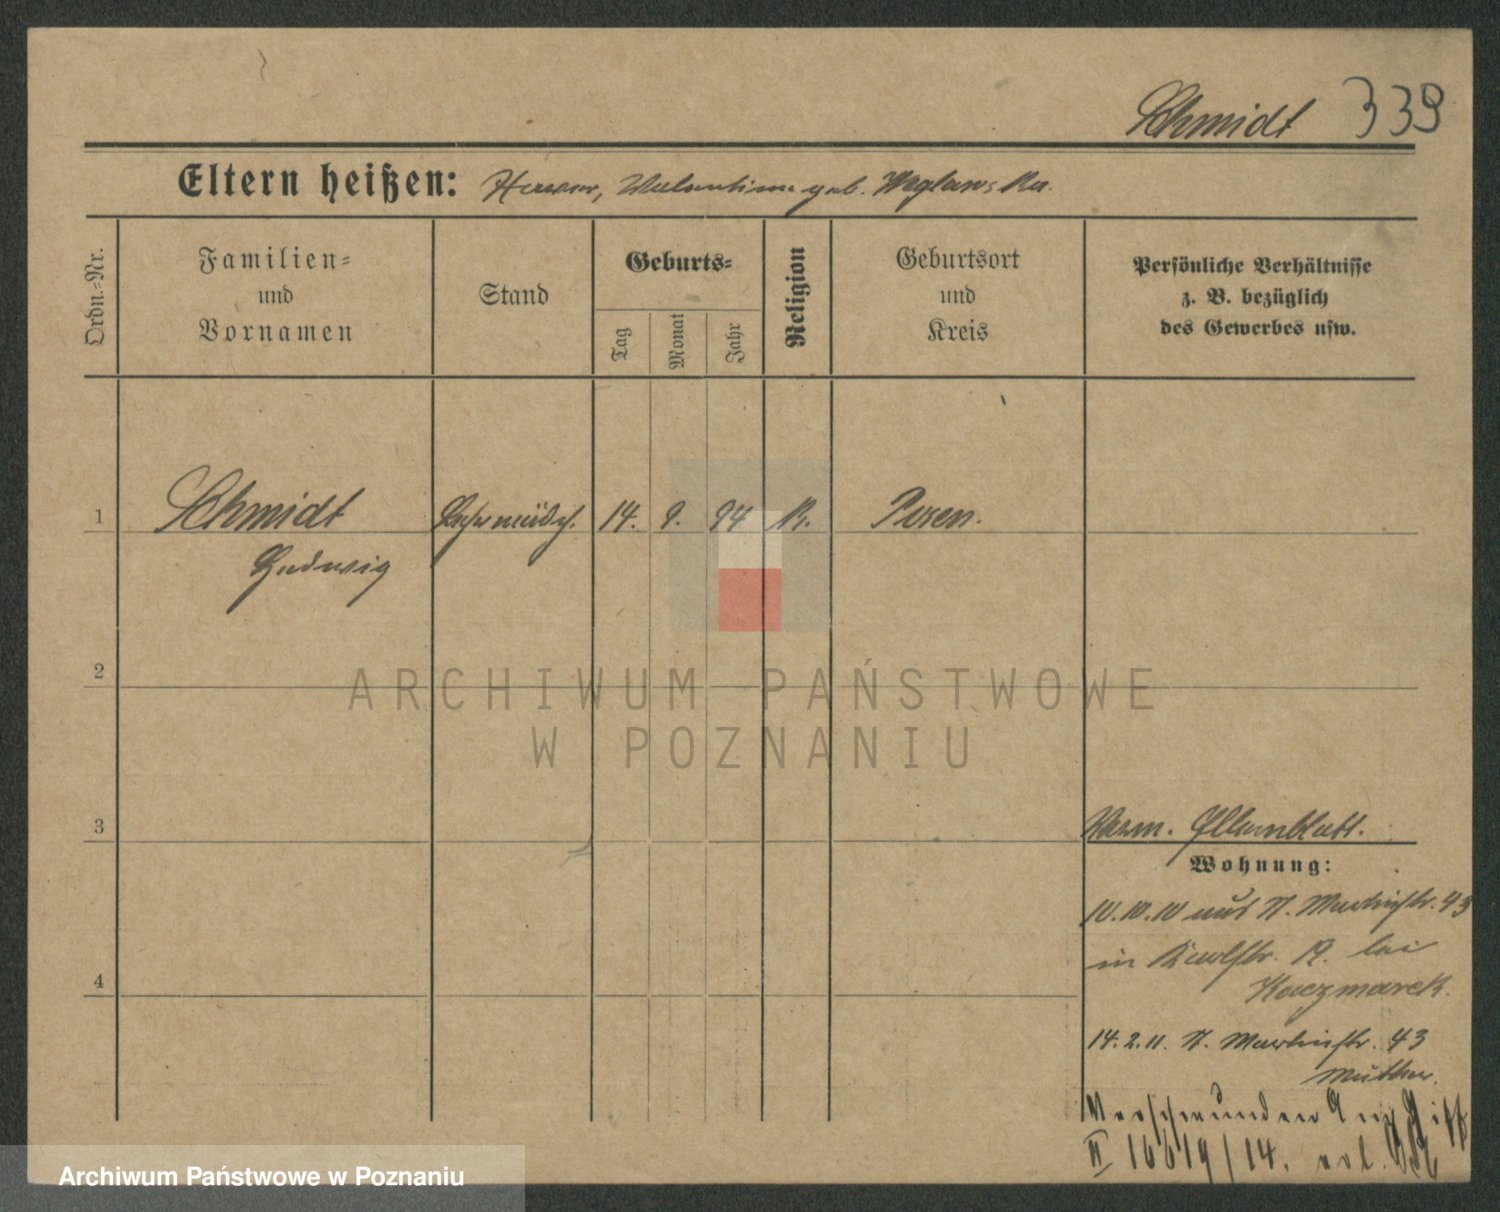 Schmidt 339
Eltern heißen: geb.
Ordn.-Nr.
Familien-
und
Vornamen
Stand
Geburts-
Tag
Monat
Jahr
Religion
Geburtsort
und
Kreis
Persönliche Verhältnisse
z. B. bezüglich
des Gewerbes usw.
1 Schmidt 14. 9. 94 K. Posen.
Hedwig
2
3
Verm. Elternblatt.
Wohnung:
10.10.10 aus St. Martinstr. 43
in Karlstr. 19. bei
Kaczmarek.
4
14.2.11. St. Martinstr. 43
Mutter.
Verschwunden
II 16619/14.
ARCHIWUM PAŃSTWOWE
W POZNANIU
Archiwum Państwowe w Poznaniu